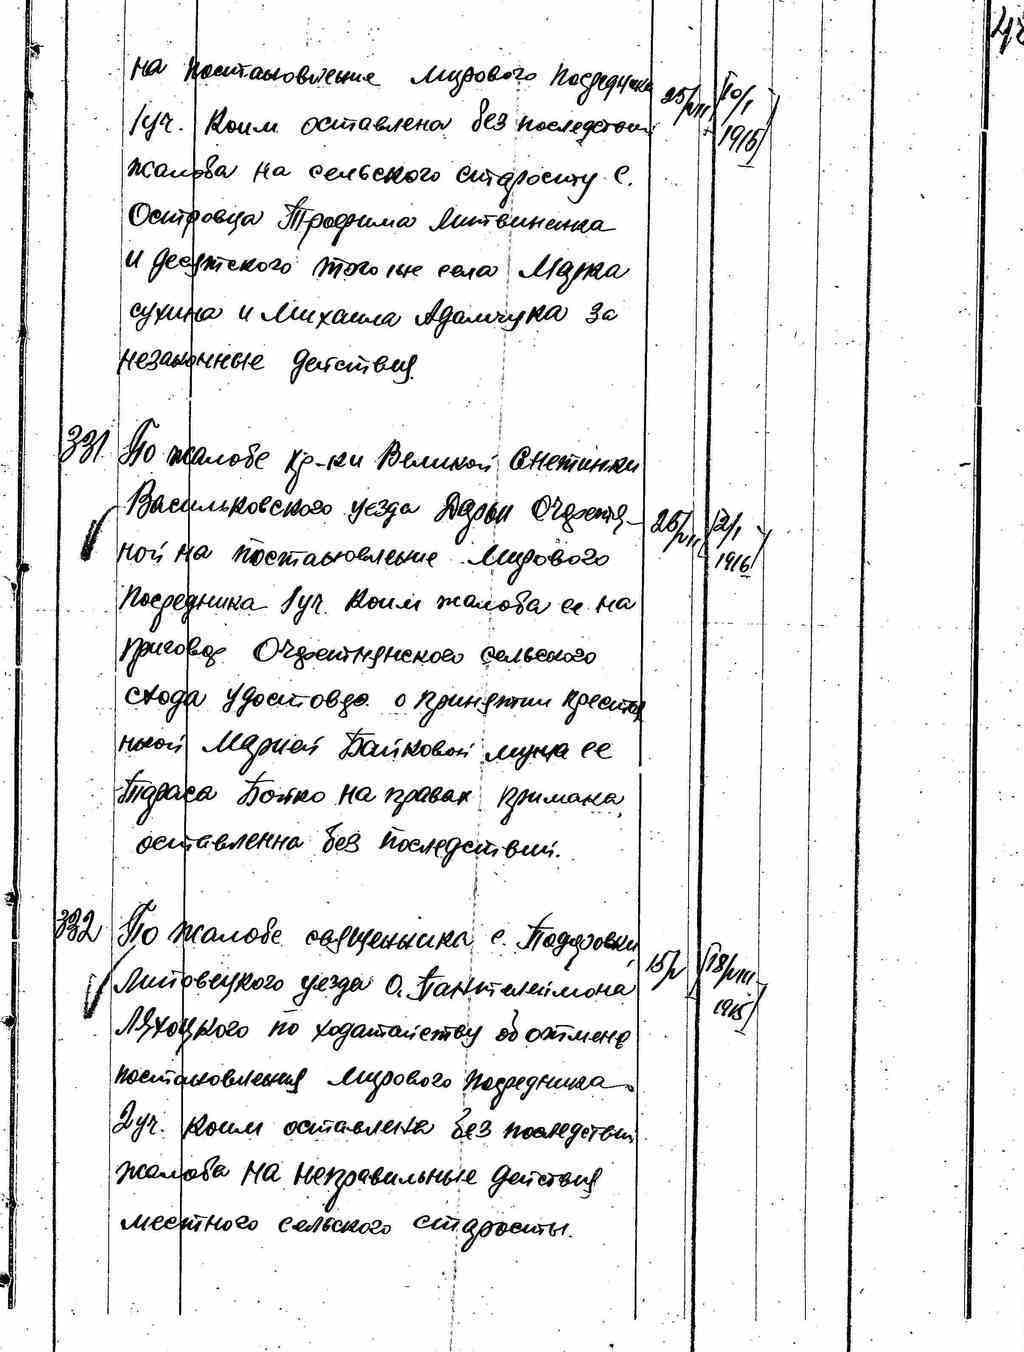 на постановление Мирового Посредника
1 уч. Коим оставлена без последствий
жалоба на сельского старосту с.
Островца Трофима Литвиненка
и десятского того же села Марка
сухина и Михаила Адамчука за
незаконные действия.
25/VIII 10/I
1916
331 По жалобе кр-ки Великой Снетинки
Васильковского уезда Дарьи Очеретя-
ной на постановление Мирового
Посредника 1 уч. Коим жалоба ее на
приговор Очеретнянского сельского
схода удостовер. о принятии крестья
нкой Марией Байковой мужа ее
Тараса Бойко на правах примака,
оставленна без последствий.
26/VIII 12/I
1916
332 По жалобе священника с.
Липовецкого уезда О. Пантелеимона
Ляхоцкого по ходатайству об отмене
постановления Мирового Посредника
2 уч. Коим оставлена без последствий
жалоба на неправильные действия
местного сельского старосты.
15/V 18/VIII
1915